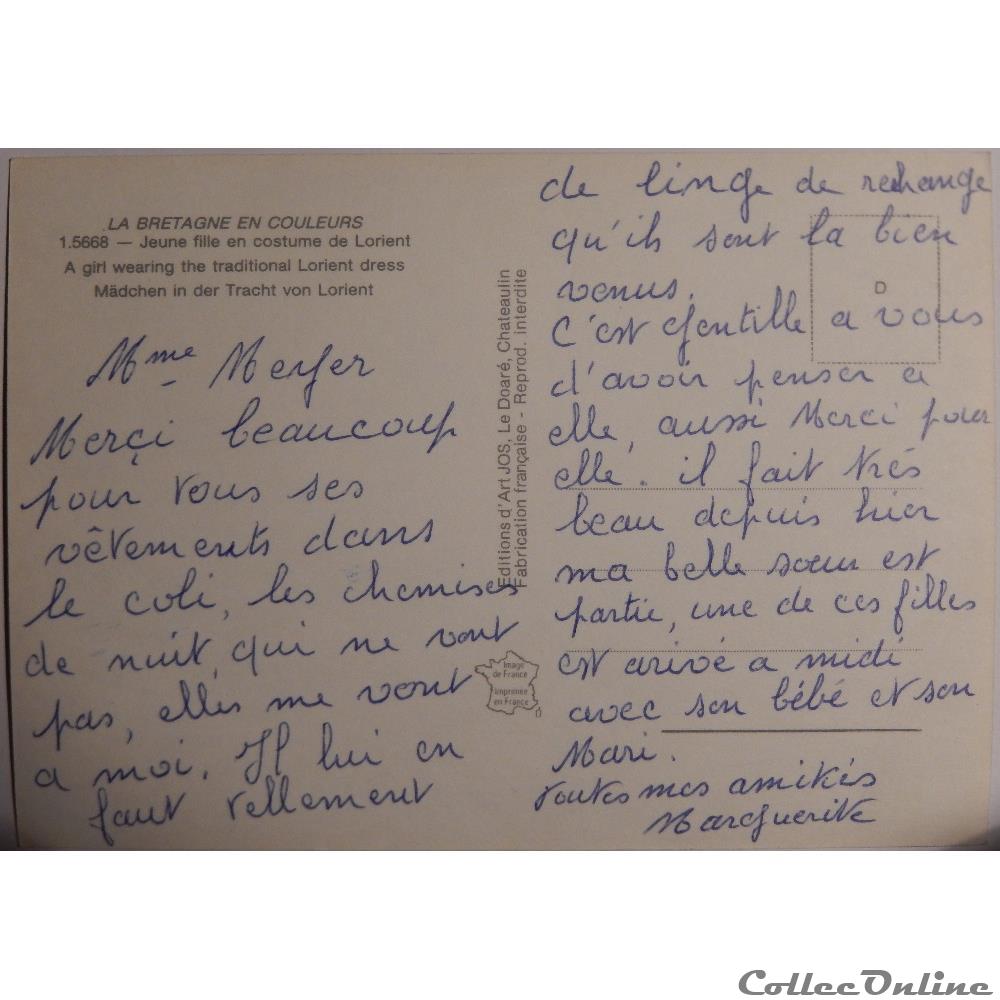 LA BRETAGNE EN COULEURS
1.5668 — Jeune fille en costume de Lorient
A girl wearing the traditional Lorient dress
Mädchen in der Tracht von Lorient
Mme Meyer
Merçi beaucoup
pour tous ses
vêtements dans
le coli, les chemises
de nuit, qui ne vont
pas, elles me vont
a moi. Il lui en
faut tellement
Editions d'Art JOS, Le Doaré, Chateaulin
Fabrication française - Reprod. interdite
Image
de France
Imprimée
en France
de linge de rechange
qu'ils sont la bien
venus.
D
C'est gentille a vous
d'avoir penser a
elle, aussi Merci pour
elle. il fait trés
beau depuis hier
ma belle sœur est
partie, une de ces filles
est arivé a midi
avec son bébé et son
Mari.
toutes mes amitiés
Marguerite
CollecOnline